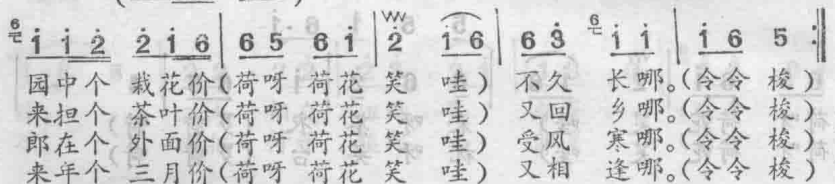 6 i i 2 2 i 6 | 6 5 6 i | 2 i 6 | 6 3 6 i i | i 6 5 :‖
园中个 栽花价(荷呀 荷花 笑 哇) 不久 长哪。(令令 梭)
来担个 茶叶价(荷呀 荷花 笑 哇) 又回 乡哪。(令令 梭)
郎在个 外面价(荷呀 荷花 笑 哇) 受风 寒哪。(令令 梭)
来年个 三月价(荷呀 荷花 笑 哇) 又相 逢哪。(令令 梭)